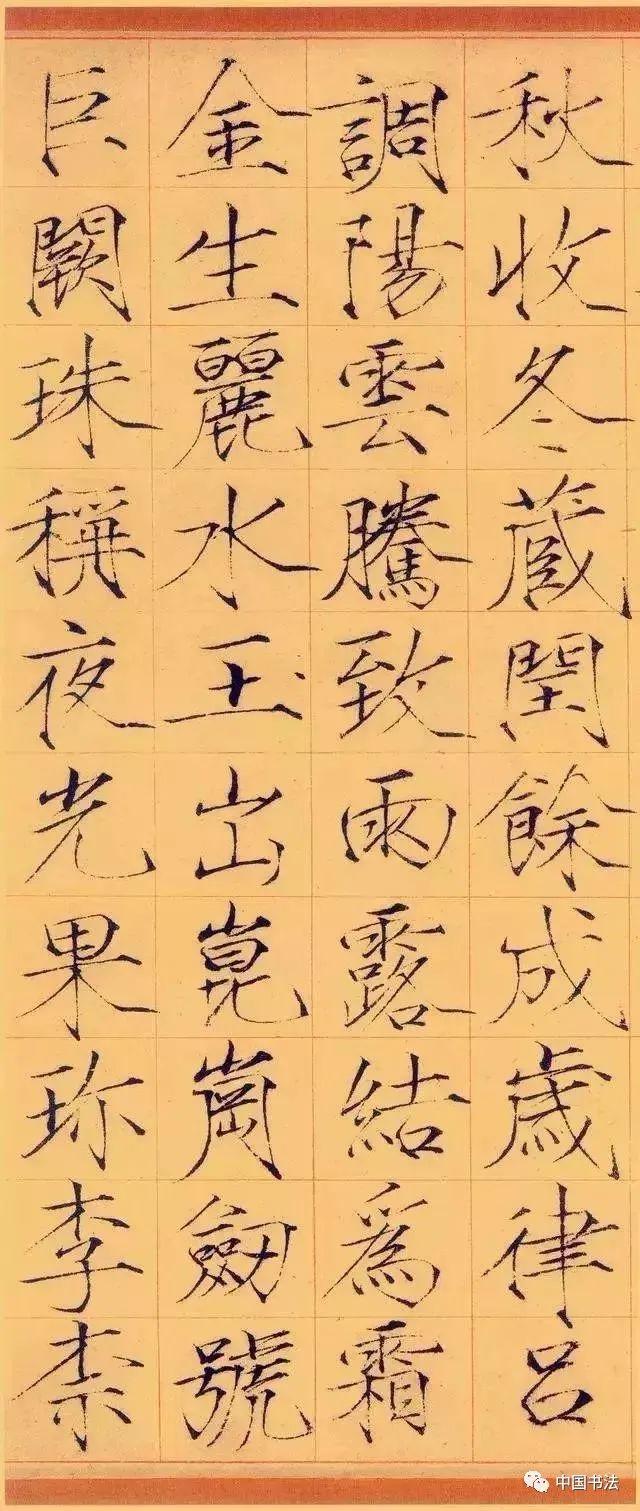 秋收冬蔵閏餘成歳律呂
調陽雲騰致雨露結爲霜
金生麗水玉出崑崗劒號
巨闕珠稱夜光果珎李柰
中国书法